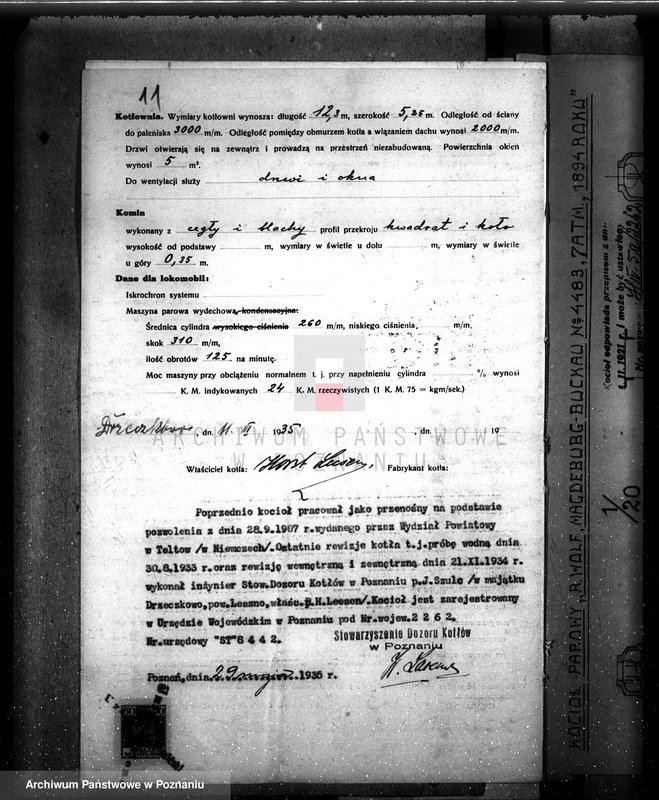 11
Kotłownia. Wymiary kotłowni wynoszą: długość 12,3 m, szerokość 5,25 m. Odległość od ściany
do paleniska 3000 m/m. Odległość pomiędzy obmurzem kotła a wiązaniem dachu wynosi 2000 m/m.
Drzwi otwierają się na zewnątrz i prowadzą na przestrzeń niezabudowaną. Powierzchnia okien
wynosi 5 m².
Do wentylacji służy drzwi i okna
Komin
wykonany z cegły i blachy profil przekroju kwadrat i koło
wysokość od podstawy m, wymiary w świetle u dołu m, wymiary w świetle
u góry 0,35 m.
Dane dla lokomobil:
Iskrochron systemu
Maszyna parowa wydechowa, kondensacyjna:
Średnica cylindra wysokiego ciśnienia 260 m/m, niskiego ciśnienia, m/m,
skok 310 m/m,
ilość obrotów 125 na minutę.
Moc maszyny przy obciążeniu normalnem t. j. przy napełnieniu cylindra % wynosi
K. M. indykowanych 24 K. M. rzeczywistych (1 K. M. 75 = kgm/sek.)
, dn. 11. VI 1935 , dn. 19
ARCHIWUM PAŃSTWOWE
W POZNANIU
Właściciel kotła: Horst Fabrykant kotła:
Poprzednio kocioł pracował jako przenośny na podstawie
pozwolenia z dnia 28.9.1907 r.wydanego przez Wydział Powiatowy
w Teltow /w Niemczech/.Ostatnie rewizje kotła t.j.próbę wodną dnia
30.8.1933 r.oraz rewizję wewnętrzną i zewnętrzną dnia 21.XI.1934 r.
wykonał inżynier Stow.Dozoru Kotłów w Poznaniu p.J.Szulc /w majątku
Drzeczkowo,pow.Leszno,właśc.p.H.Leesen/.Kocioł jest zarejestrowany
w Urzędzie Wojewódzkim w Poznaniu pod Nr.wojew.2 2 6 2.
Nr.urzędowy "ST"8 4 4 2.
Stowarzyszenie Dozoru Kotłów
w Poznaniu
Poznań,dnia 1935 r.
KOCIOŁ PAROWY „R. WOLF, MAGDEBURG-BUCKAU № 4483, 7 ATM, 1894 ROKU”
Kocioł odpowiada przepisom z dn.
i może być ustawiony
1/20
Archiwum Państwowe w Poznaniu